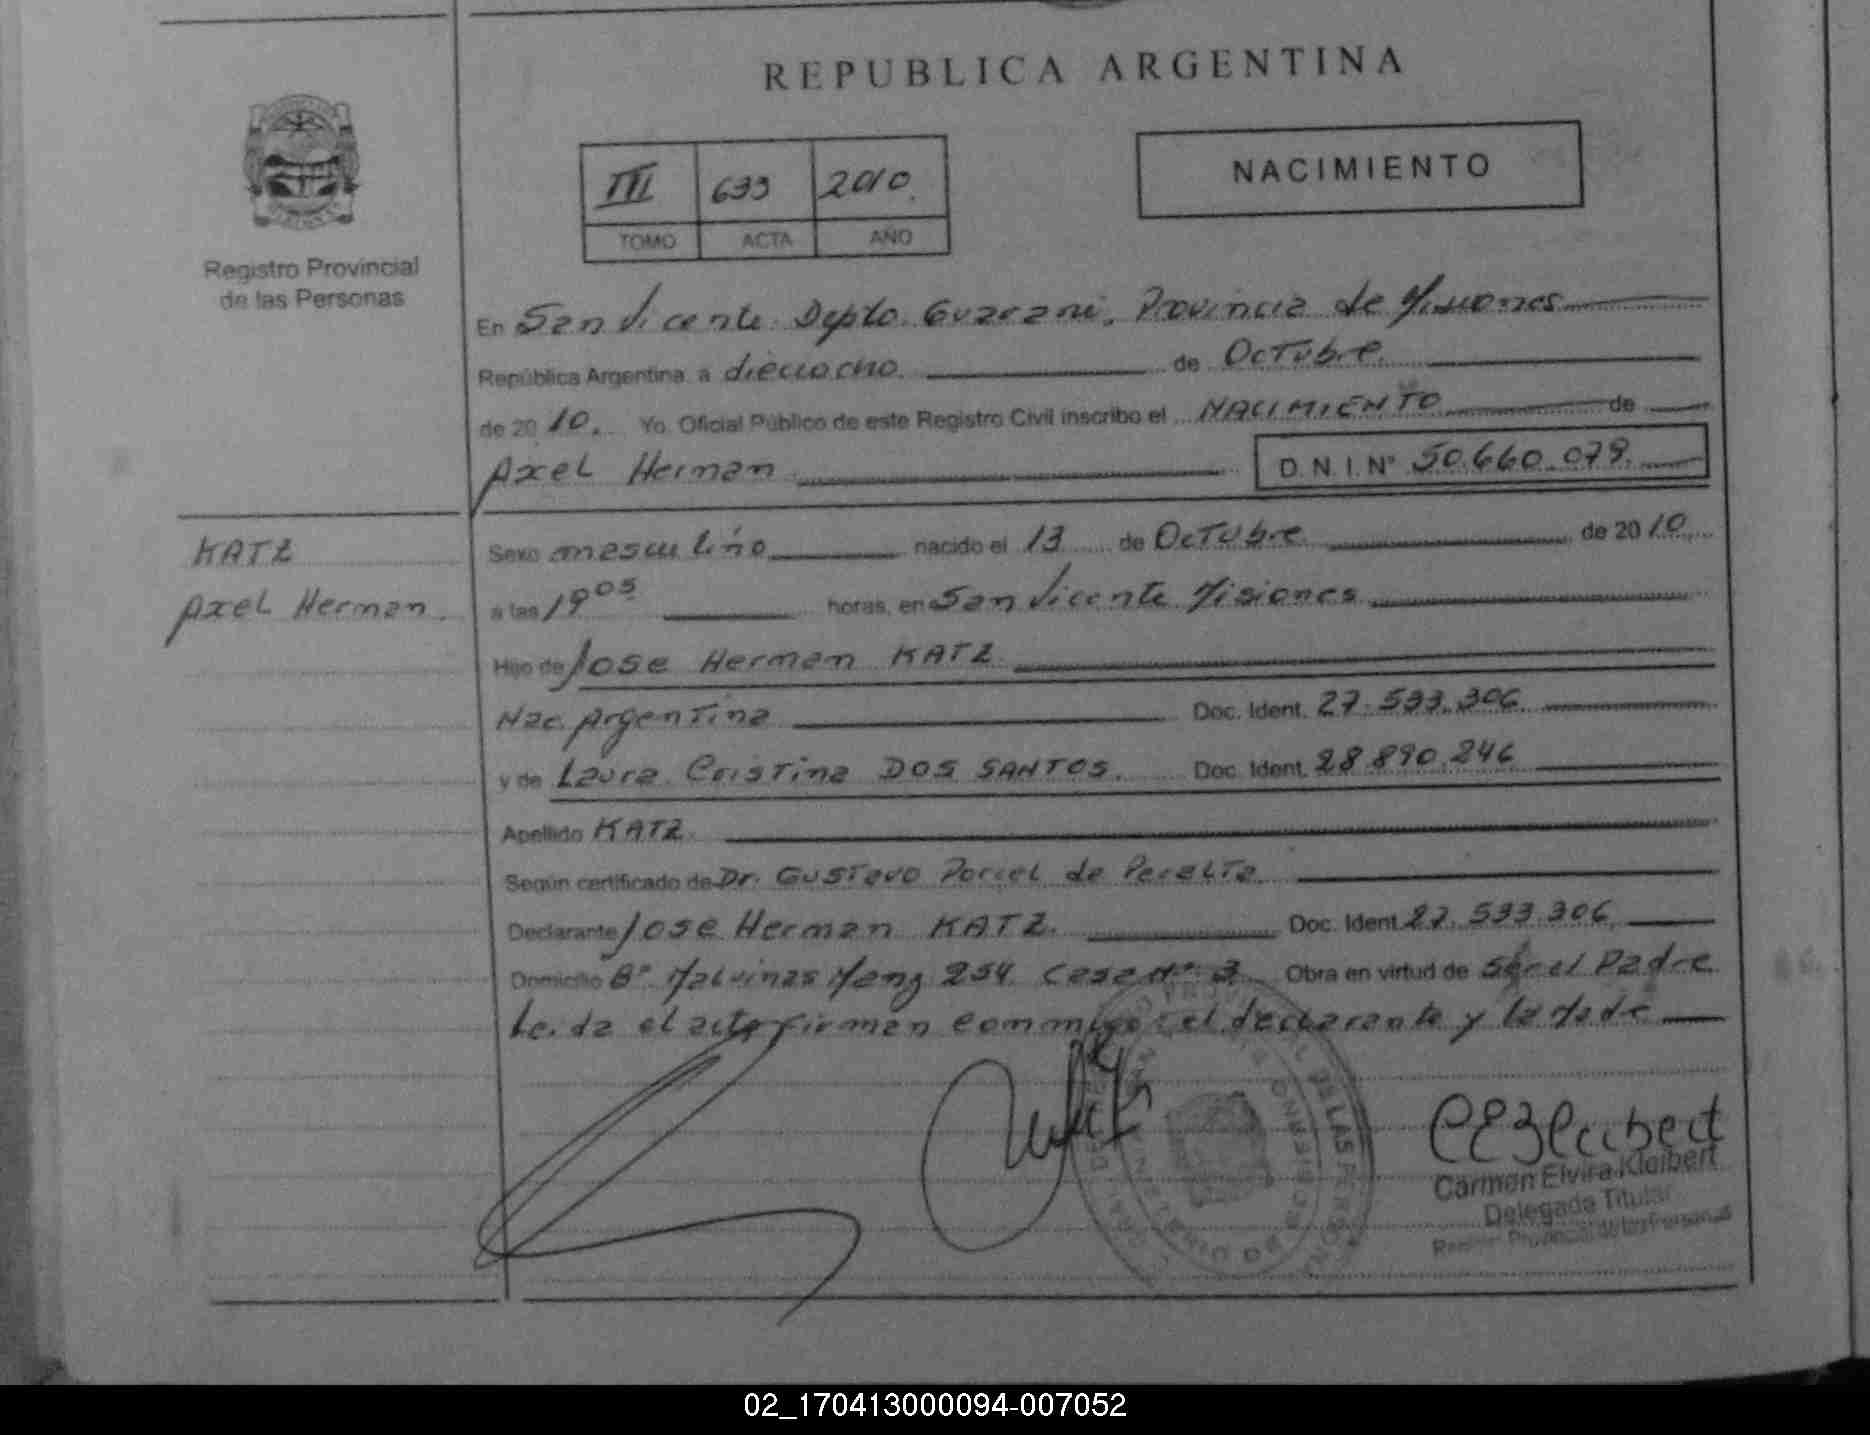 REPUBLICA ARGENTINA
III 633 2010.
TOMO ACTA AÑO
NACIMIENTO
Registro Provincial
de las Personas
En San Vicente Depto. Guarani, Provincia de Misiones
República Argentina, a dieciocho de Octubre
de 2010. Yo, Oficial Público de este Registro Civil inscribo el NACIMIENTO de
Axel Herman D.N.I. Nº 50.660.079.
KATZ
Axel Herman.
Sexo masculino nacido el 13 de Octubre de 2010
a las 19 05 horas, en San Vicente Misiones
Hijo de Jose Herman KATZ
Nac. Argentina Doc. Ident. 27.533.306
y de Laura Cristina DOS SANTOS. Doc. Ident. 28.890.246
Apellido KATZ
Según certificado de Dr. Gustavo Porcel de Peralta
Declarante Jose Herman KATZ. Doc. Ident. 27.533.306
Domicilio Bº Malvinas Manz 254 Casa Nº 3 Obra en virtud de Ser el Padre
Leida el acta firman conmigo el declarante y la Madre
Carmen Elvira Kleibert
Delegada Titular
Registro Provincial de las Personas
02_170413000094-007052